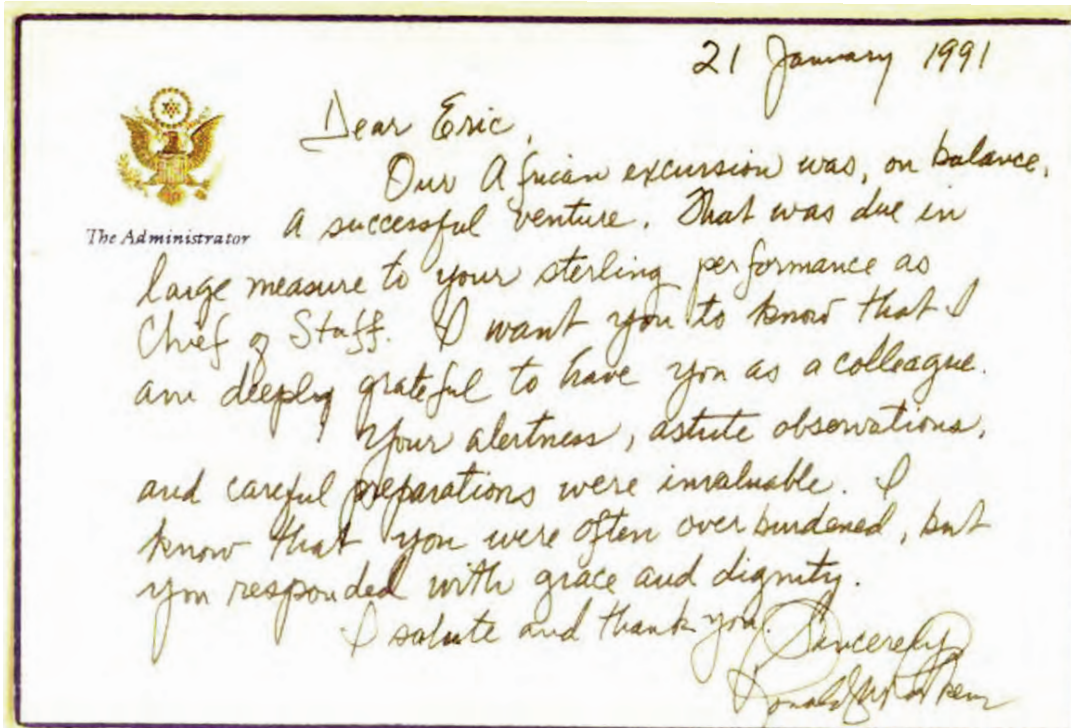 21 January 1991
Dear Eric,
Our African excursion was, on balance,
The Administrator
a successful venture. That was due in
large measure to your sterling performance as
Chief of Staff. I want you to know that I
am deeply grateful to have you as a colleague.
Your alertness, astute observations,
and careful preparations were invaluable. I
know that you were often overburdened, but
you responded with grace and dignity.
I salute and thank you. Sincerely,
Ronald